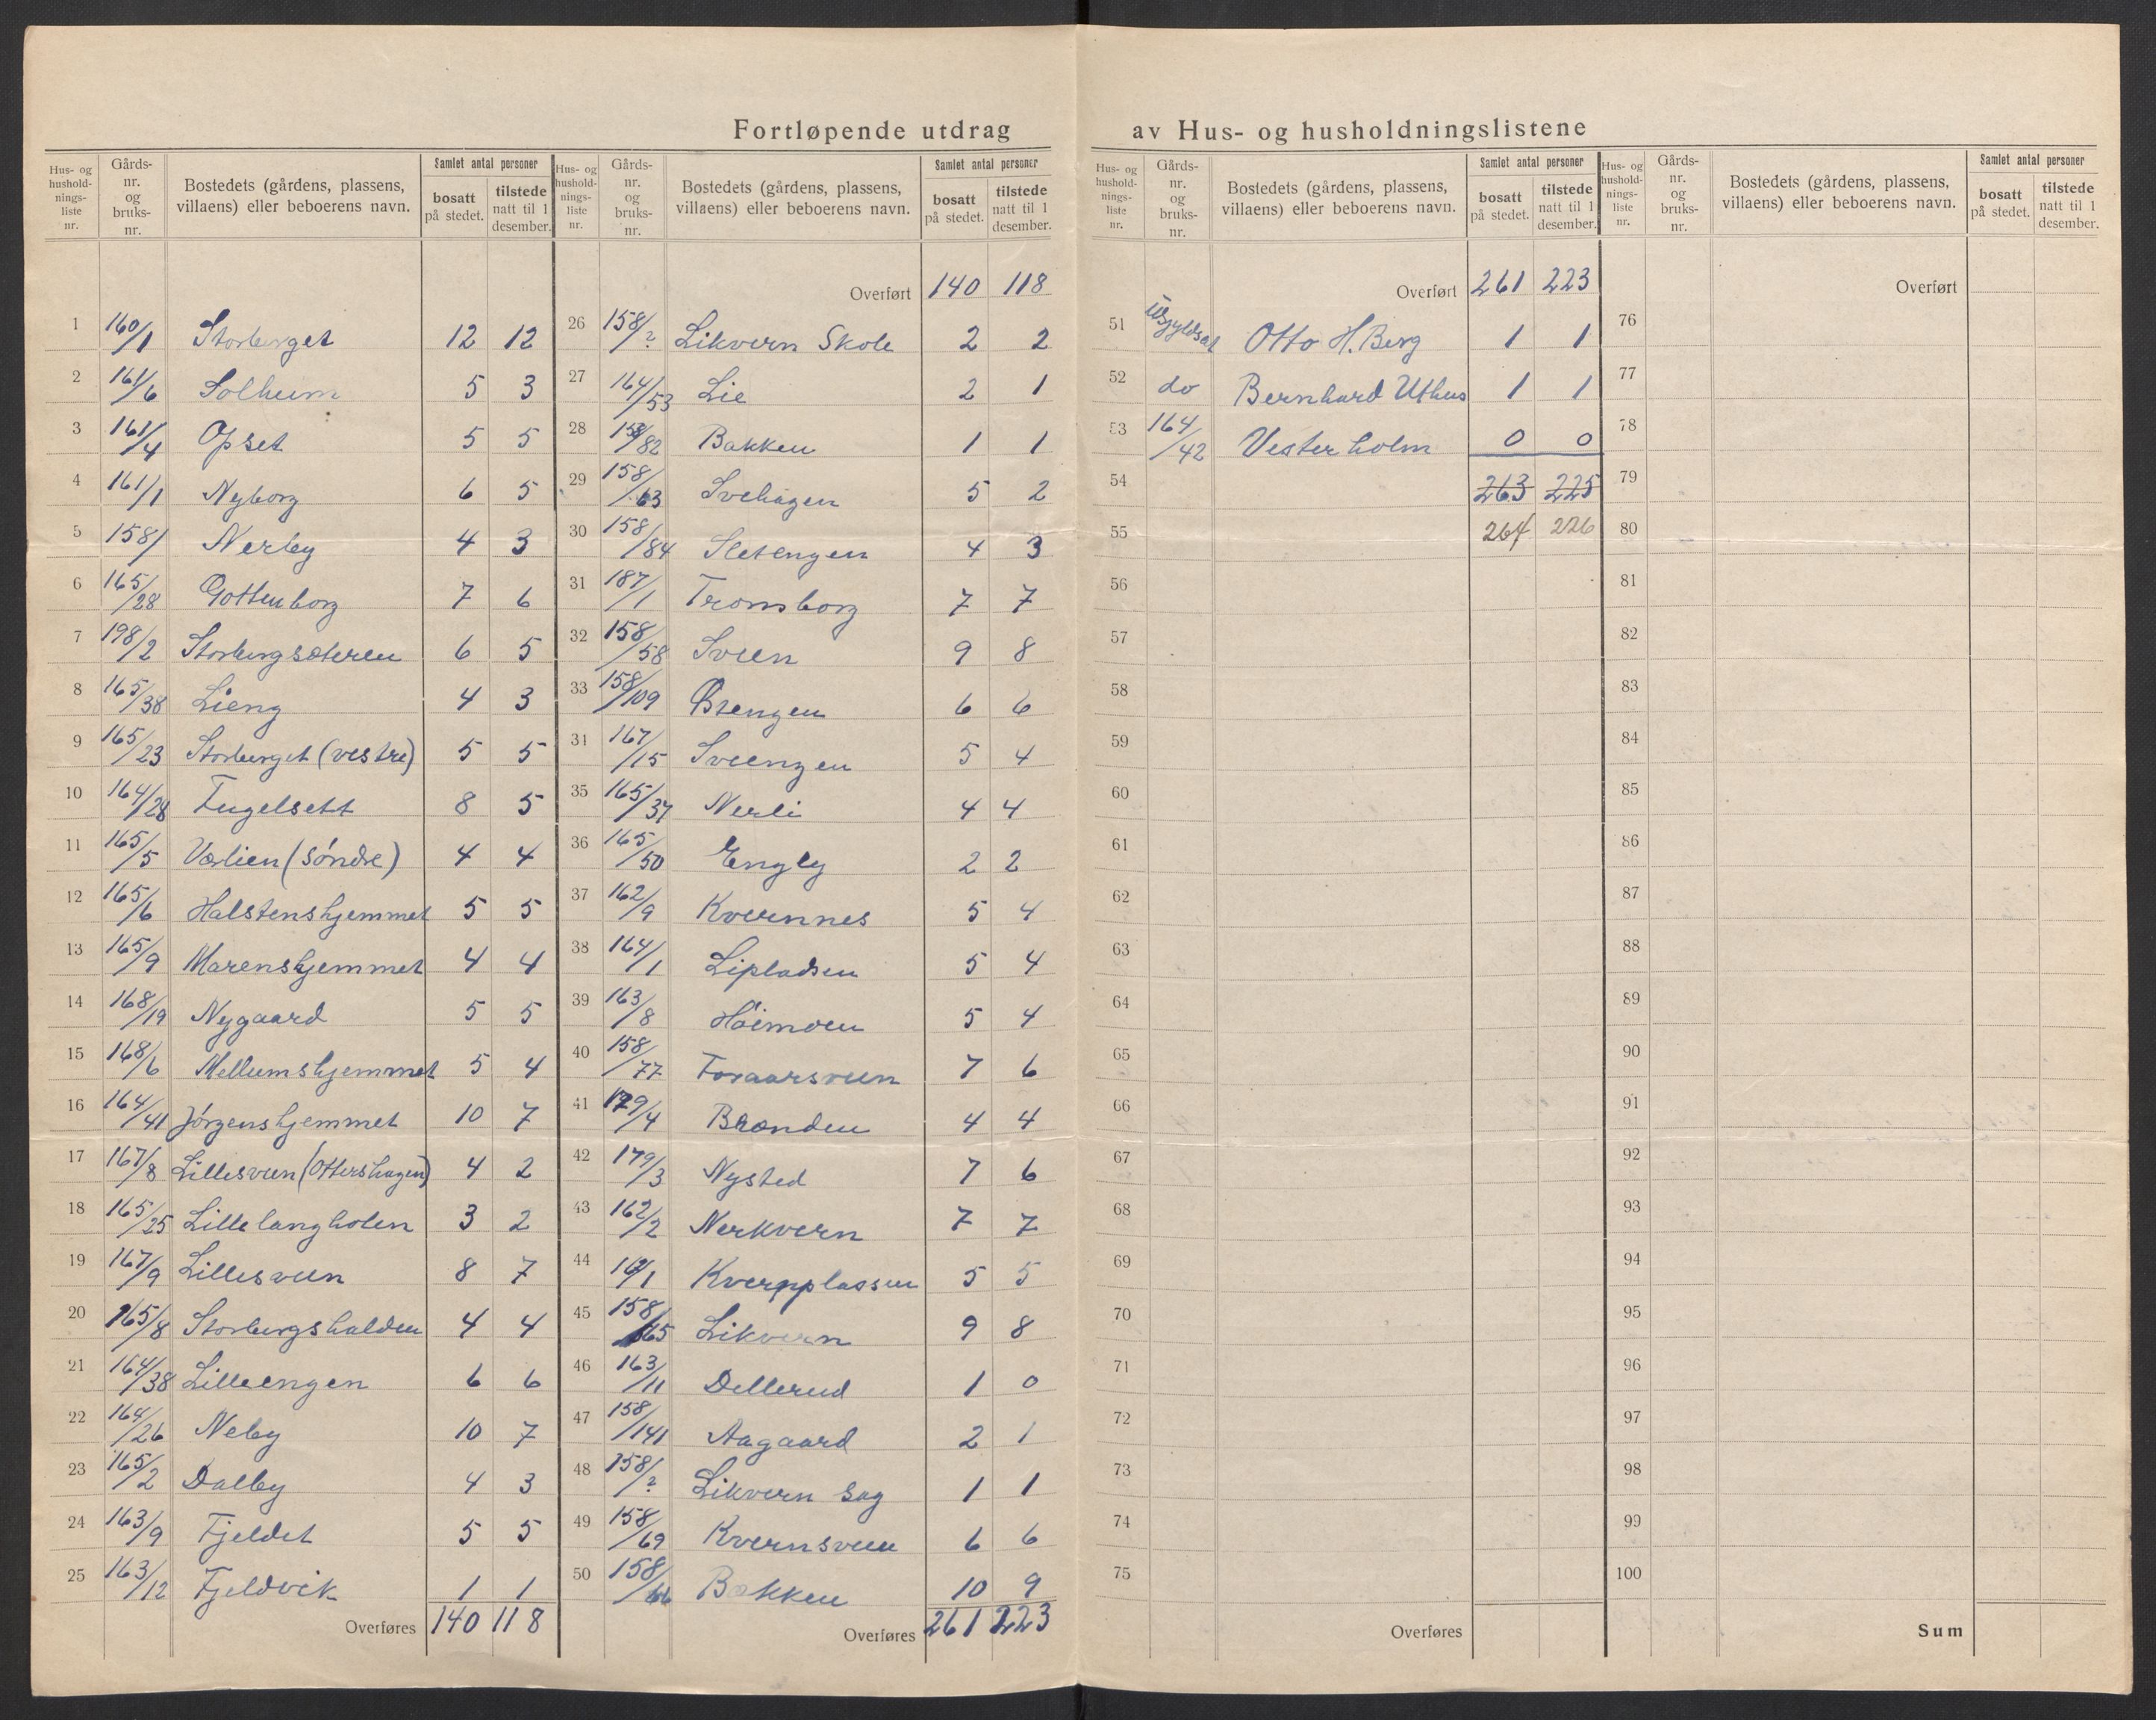 Fortløpende utdrag av Hus- og husholdningslistene
Hus- og hushold-nings-liste nr. | Gårds-nr. og bruks-nr. | Bostedets (gårdens, plassens, villaens) eller beboerens navn. | Samlet antal personer | bosatt på stedet. | tilstede natt til 1 desember.
1 160/1 Storberget 12 12
2 161/6 Solheim 5 3
3 161/4 Opset 5 5
4 161/1 Nyborg 6 5
5 158/ Nerby 4 3
6 165/28 Gottenborg 7 6
7 198/2 Storbergsæteren 6 5
8 165/38 Lieng 4 3
9 165/23 Storberget (vestre) 5 5
10 164/28 Fugelsett 8 5
11 165/5 Vørlien (søndre) 4 4
12 165/6 Halstenshjemmet 5 5
13 165/9 Marenshjemmet 4 4
14 168/19 Nygaard 5 5
15 168/6 Mellumshjemmet 5 4
16 164/41 Jørgenshjemmet 10 7
17 167/8 Lillesveen (Ottershagen) 4 2
18 165/25 Lillelangholen 3 2
19 167/9 Lillesveen 8 7
20 165/8 Storbergshalden 4 4
21 164/38 Lilleengen 6 6
22 164/26 Neby 10 7
23 165/2 Dalby 4 3
24 163/9 Fjeldet 5 5
25 163/12 Fjeldvik 1 1
Overføres 140 118
Hus- og hushold-nings-liste nr. | Gårds-nr. og bruks-nr. | Bostedets (gårdens, plassens, villaens) eller beboerens navn. | Samlet antal personer | bosatt på stedet. | tilstede natt til 1 desember.
Overført 140 118
26 158/? Likvern Skole 2 2
27 164/53 Lie 2 1
28 158/82 Bakken 1 1
29 158/63 Svehagen 5 2
30 158/84 Sletengen 4 3
31 187/1 Tromsborg 7 7
32 158/58 Sveen 9 8
33 158/109 Østengen 6 6
31 167/15 Sveengen 5 4
35 165/37 Nerli 4 4
36 165/50 Engly 2 2
37 162/9 Kvernnes 5 4
38 164/1 Lipladsen 5 4
39 163/8 Høimoen 5 4
40 158/77 Foraarsveen 7 6
41 179/4 Brænden 4 4
42 179/3 Nysted 7 6
43 162/2 Nerkvern 7 7
44 162/1 Kvernplassen 5 5
45 158/65 Likvern 9 8
46 163/11 Dellerud 1 0
47 158/141 Aagaard 2 1
48 158/? Likvern Sag 1 1
49 158/69 Kvernsveen 6 6
50 158/66 Bakken 10 9
Overføres 261 223
Hus- og hushold-nings-liste nr. | Gårds-nr. og bruks-nr. | Bostedets (gårdens, plassens, villaens) eller beboerens navn. | Samlet antal personer | bosatt på stedet. | tilstede natt til 1 desember.
Overført 261 223
51 Otto H. Berg 1 1
52 do Bernhard Uthus 1 1
53 164/42 Vesterholm 0 0
54 263 225
55 264 226
56
57
58
59
60
61
62
63
64
65
66
67
68
69
70
71
72
73
74
75
Overføres
Hus- og hushold-nings-liste nr. | Gårds-nr. og bruks-nr. | Bostedets (gårdens, plassens, villaens) eller beboerens navn. | Samlet antal personer | bosatt på stedet. | tilstede natt til 1 desember.
Overført
76
77
78
79
80
81
82
83
84
85
86
87
88
89
90
91
92
93
94
95
96
97
98
99
100
Sum